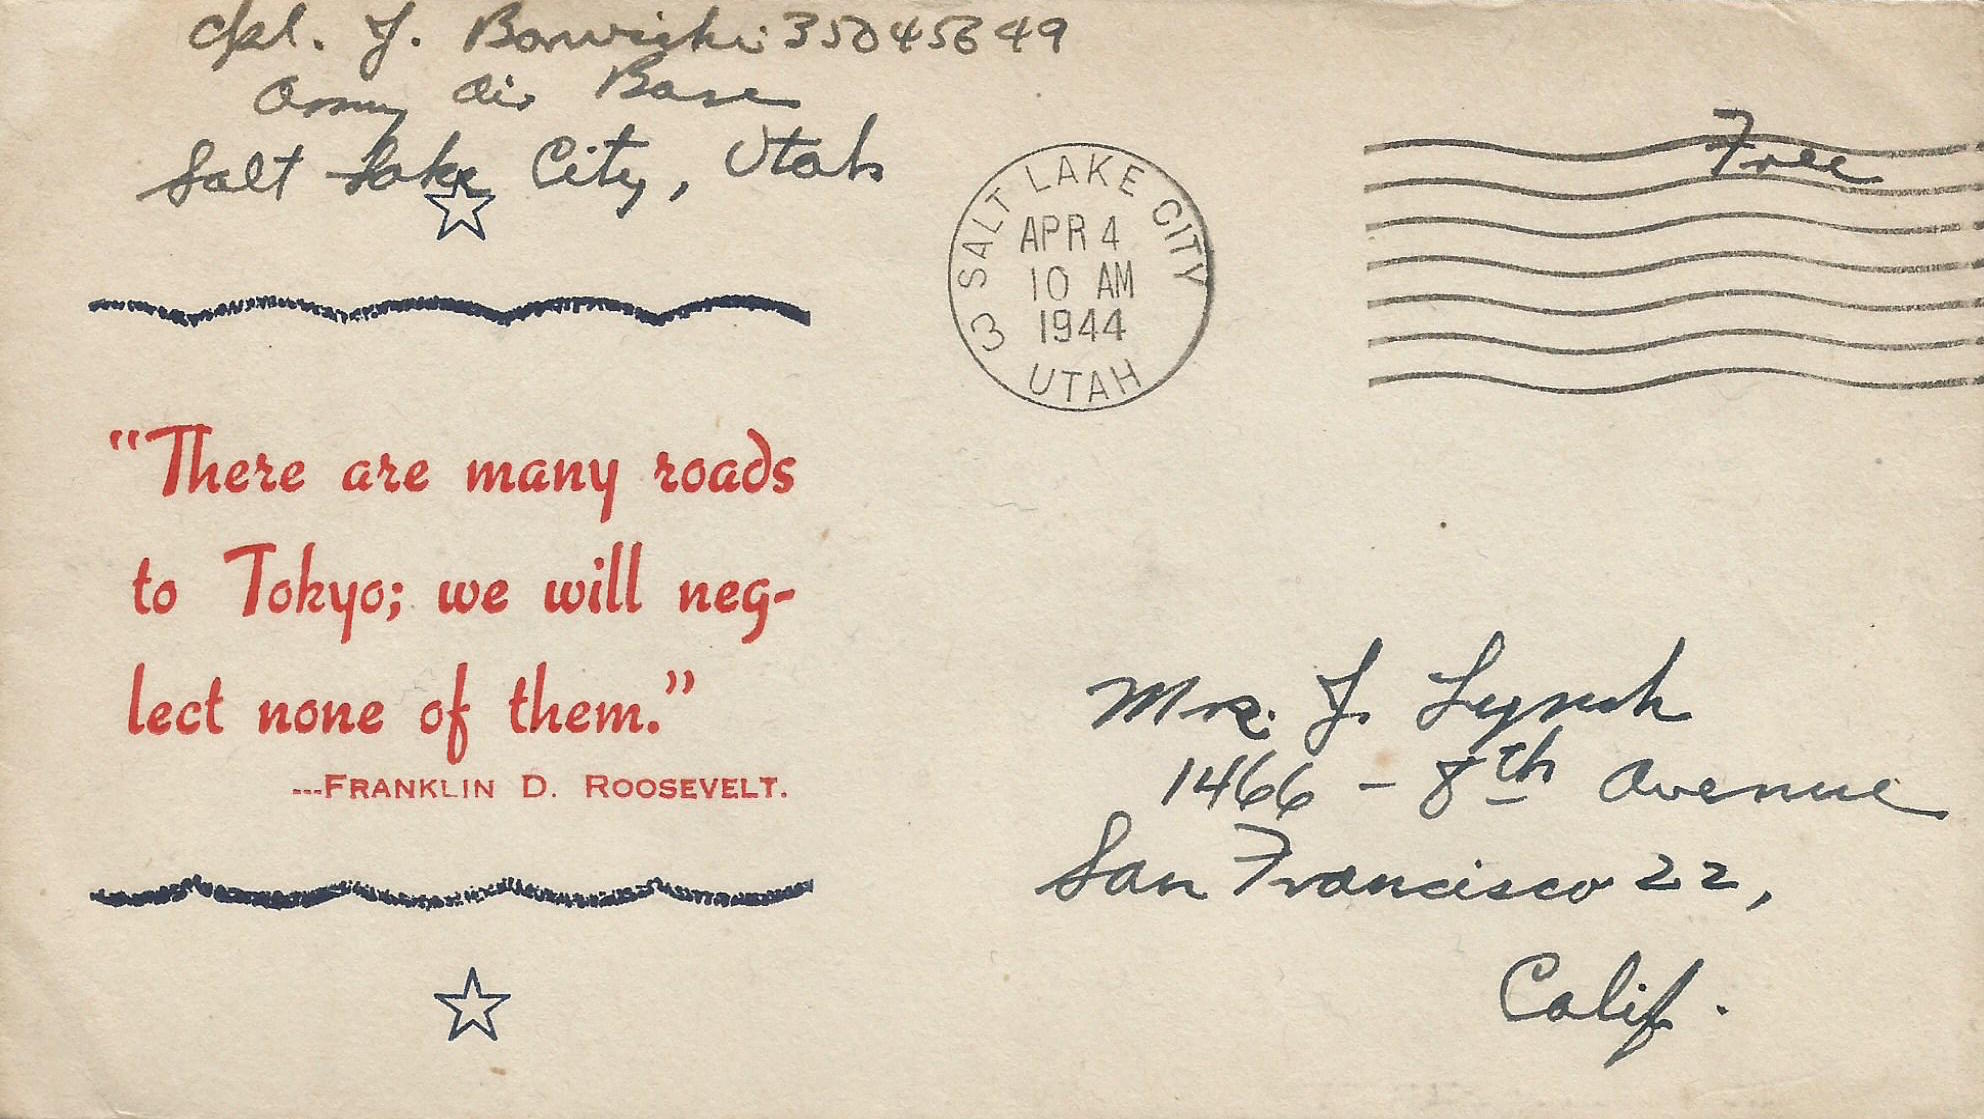 Cpl. J. Borwicki 35045649
Army Air Base
Salt Lake City, Utah
Free
3 SALT LAKE CITY
APR 4
10 AM
1944
UTAH
“There are many roads
to Tokyo; we will neg-
lect none of them.”
---FRANKLIN D. ROOSEVELT.
Mrs. J. Lynch
1466 - 8th Avenue
San Francisco 22,
Calif.